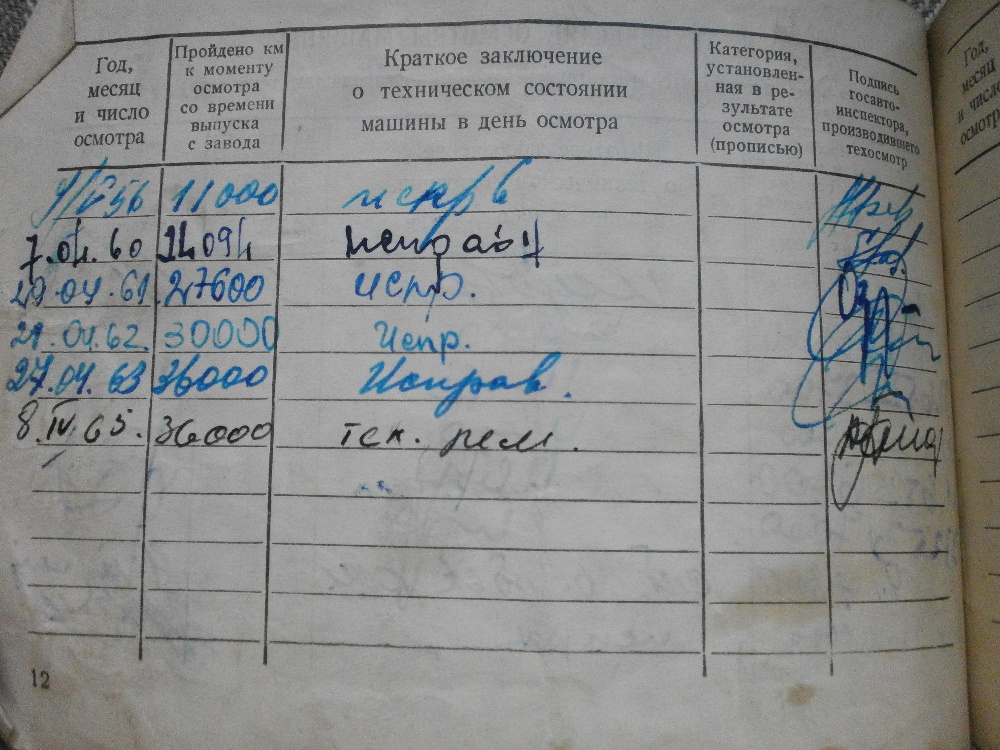 Год,
месяц
и число
осмотра
Пройдено км
к моменту
осмотра
со времени
выпуска
с завода
Краткое заключение
о техническом состоянии
машины в день осмотра
Категория,
установлен-
ная в ре-
зультате
осмотра
(прописью)
Подпись
госавто-
инспектора,
производившего
техосмотр
Год,
месяц
и число
осмотр
11000
7.04.60 14094
04.61 27600 испр.
21.04.62. 30000 Испр.
27.04.63 36000 Исправ.
8.IV.65. 36000 тек. рем.
12